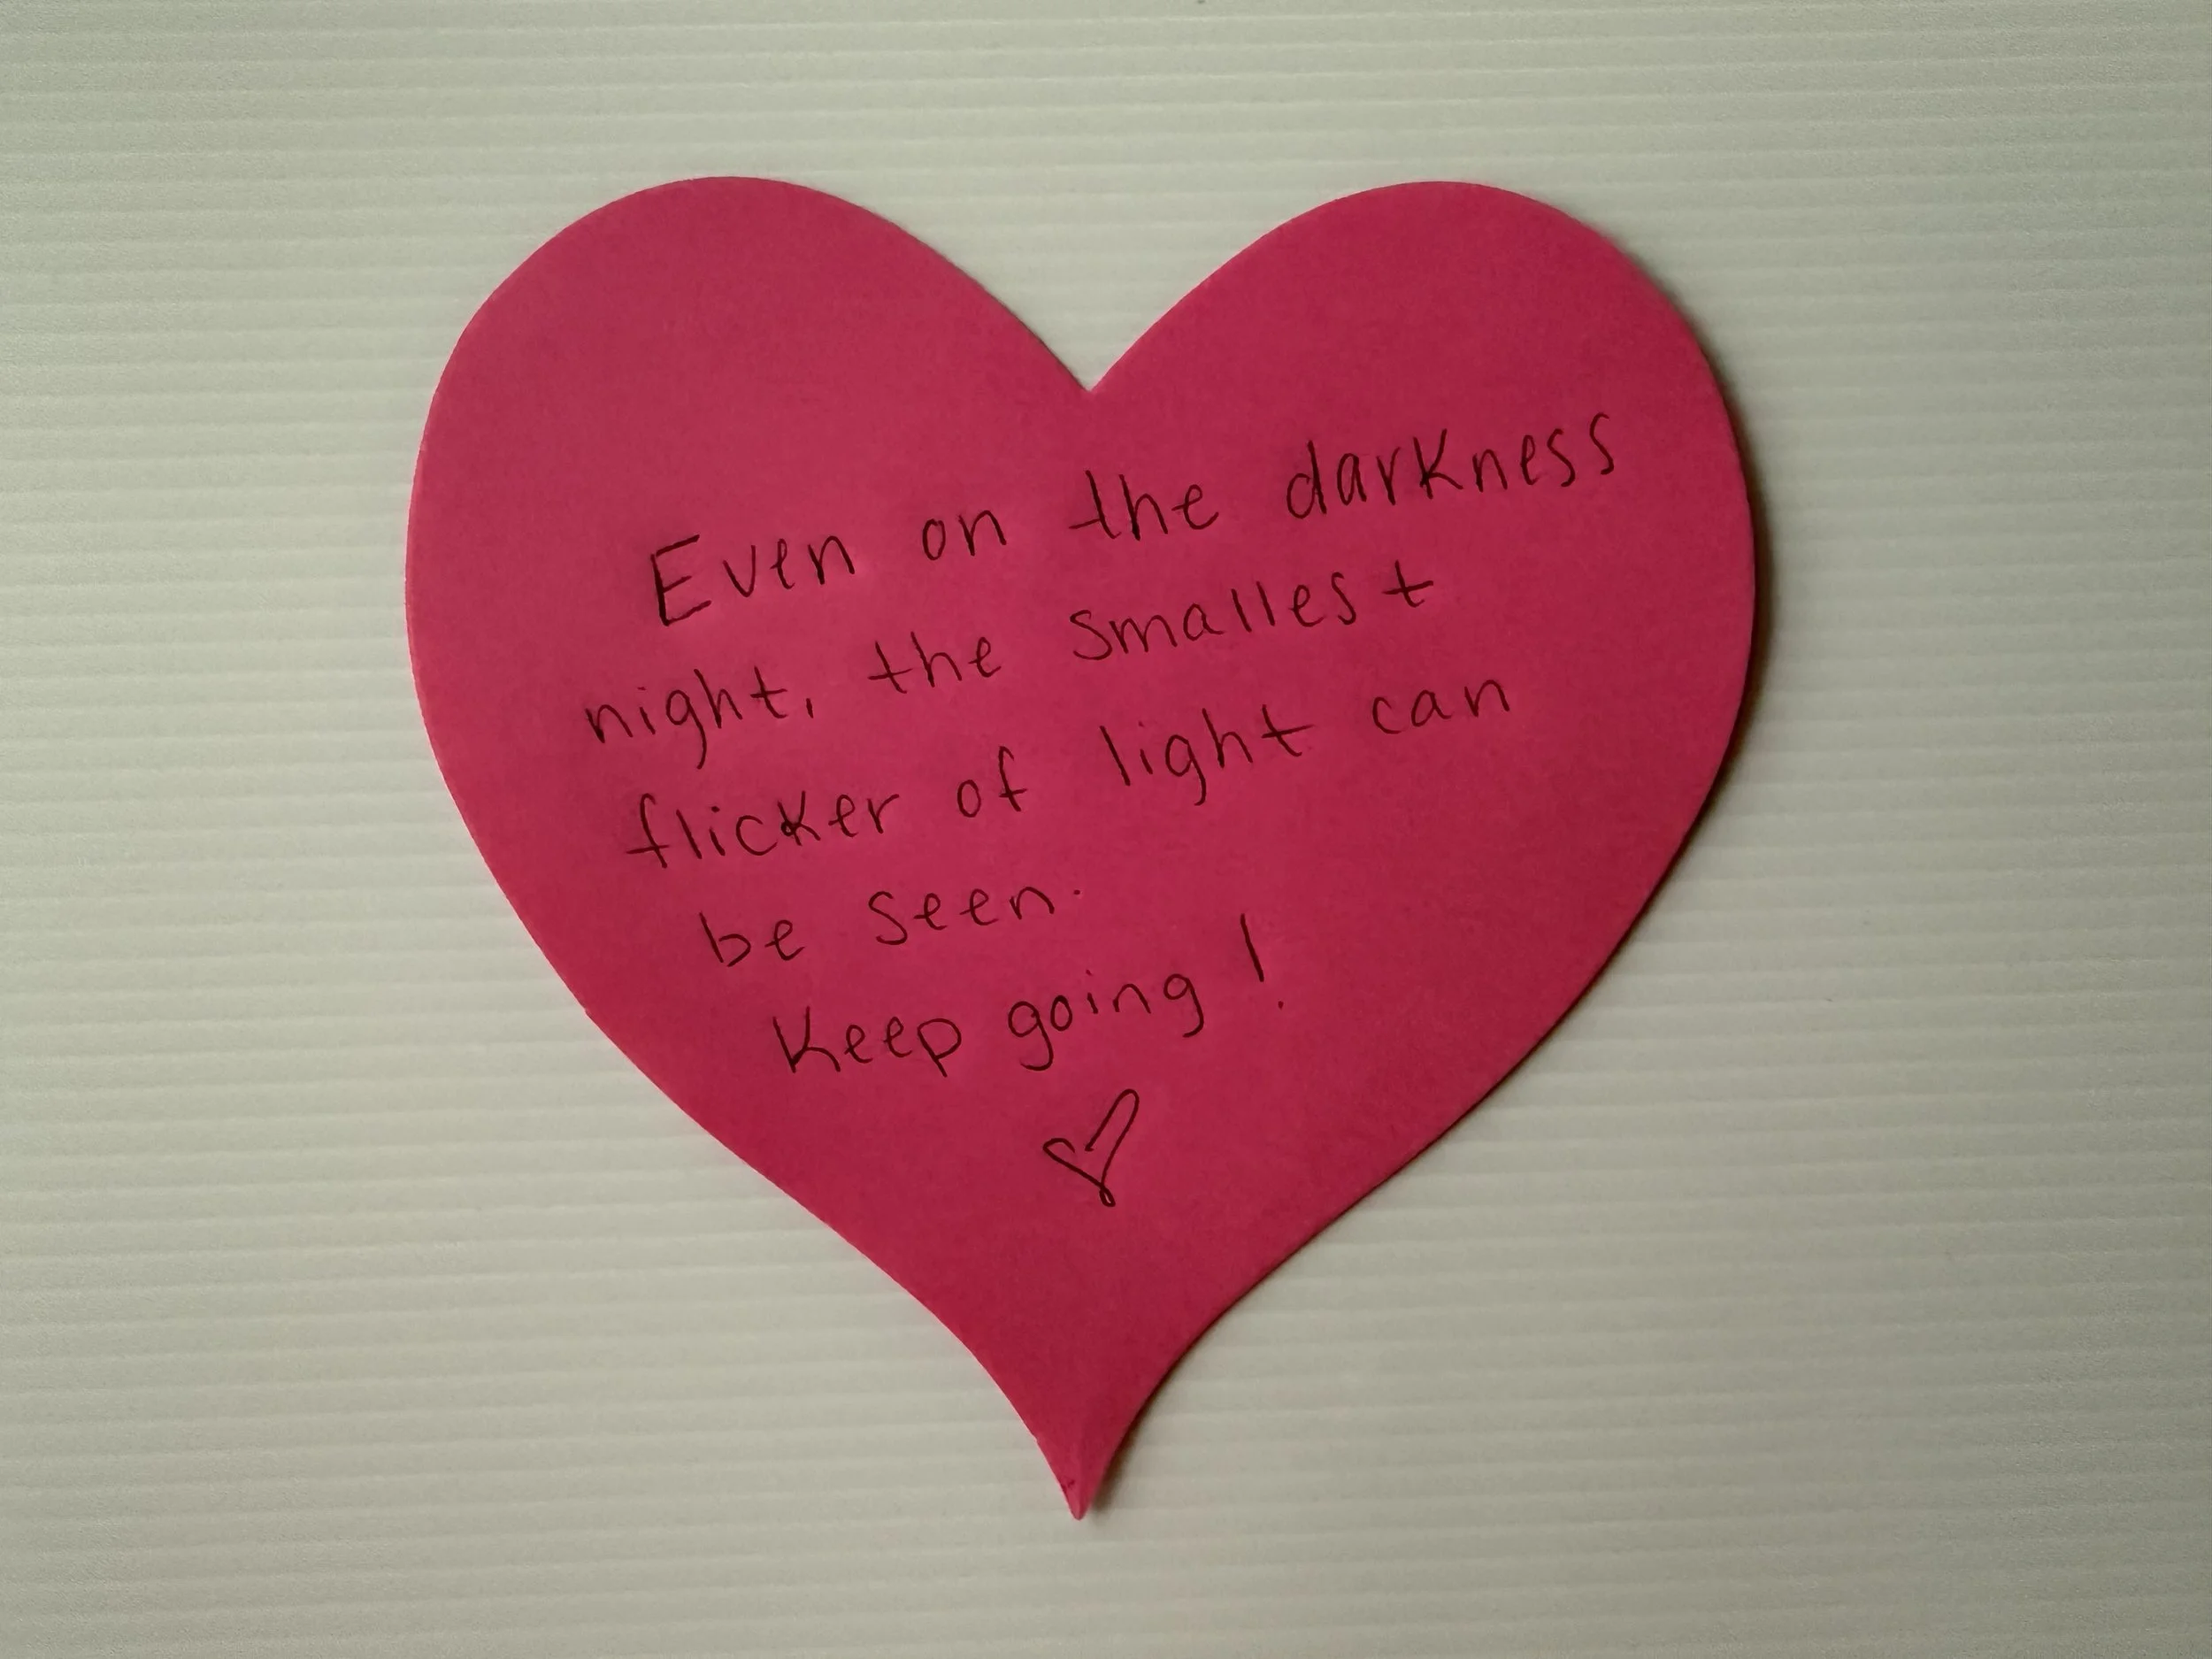 Even on the darkness
night, the smallest
flicker of light can
be seen.
Keep going!